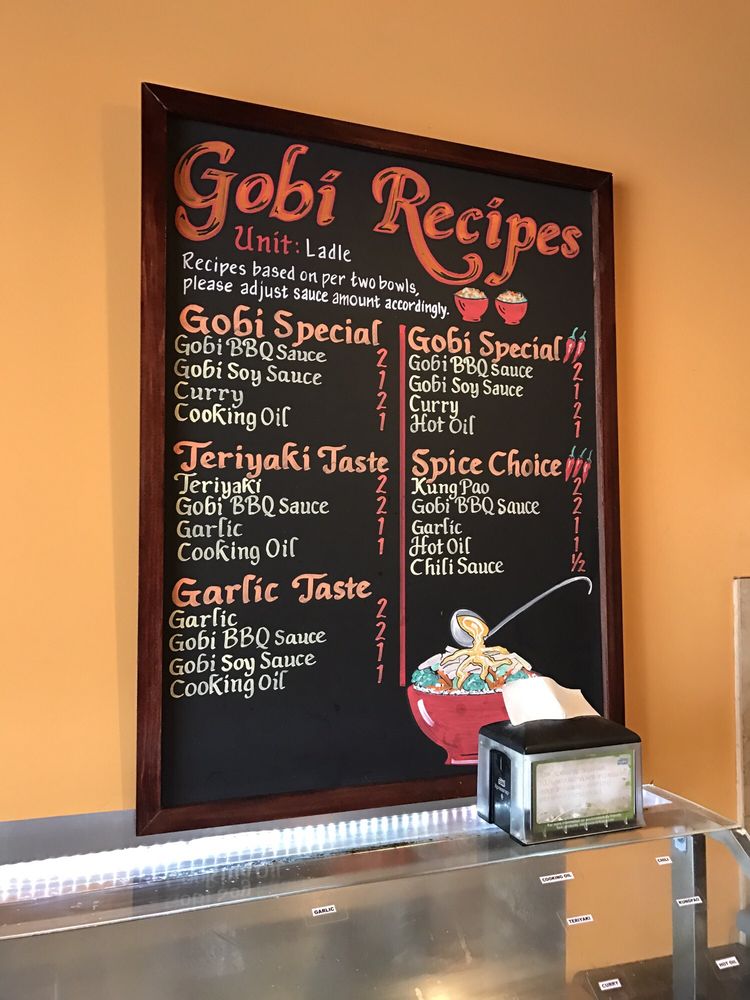 Gobi Recipes
Unit: Ladle
Recipes based on per two bowls,
please adjust sauce amount accordingly.
Gobi Special
Gobi BBQ Sauce 2
Gobi Soy Sauce 1
Curry 2
Cooking Oil 1
Teriyaki Taste
Teriyaki 2
Gobi BBQ Sauce 2
Garlic 1
Cooking Oil 1
Garlic Taste
Garlic 2
Gobi BBQ Sauce 2
Gobi Soy Sauce 1
Cooking Oil 1
Gobi Special
Gobi BBQ Sauce 2
Gobi Soy Sauce 1
Curry 2
Hot Oil 1
Spice Choice
Kung Pao 2
Gobi BBQ Sauce 2
Garlic 1
Hot Oil 1
Chili Sauce 1/2
CHILI
COOKING OIL
KUNGPAO
GARLIC
TERIYAKI
HOT OIL
CURRY